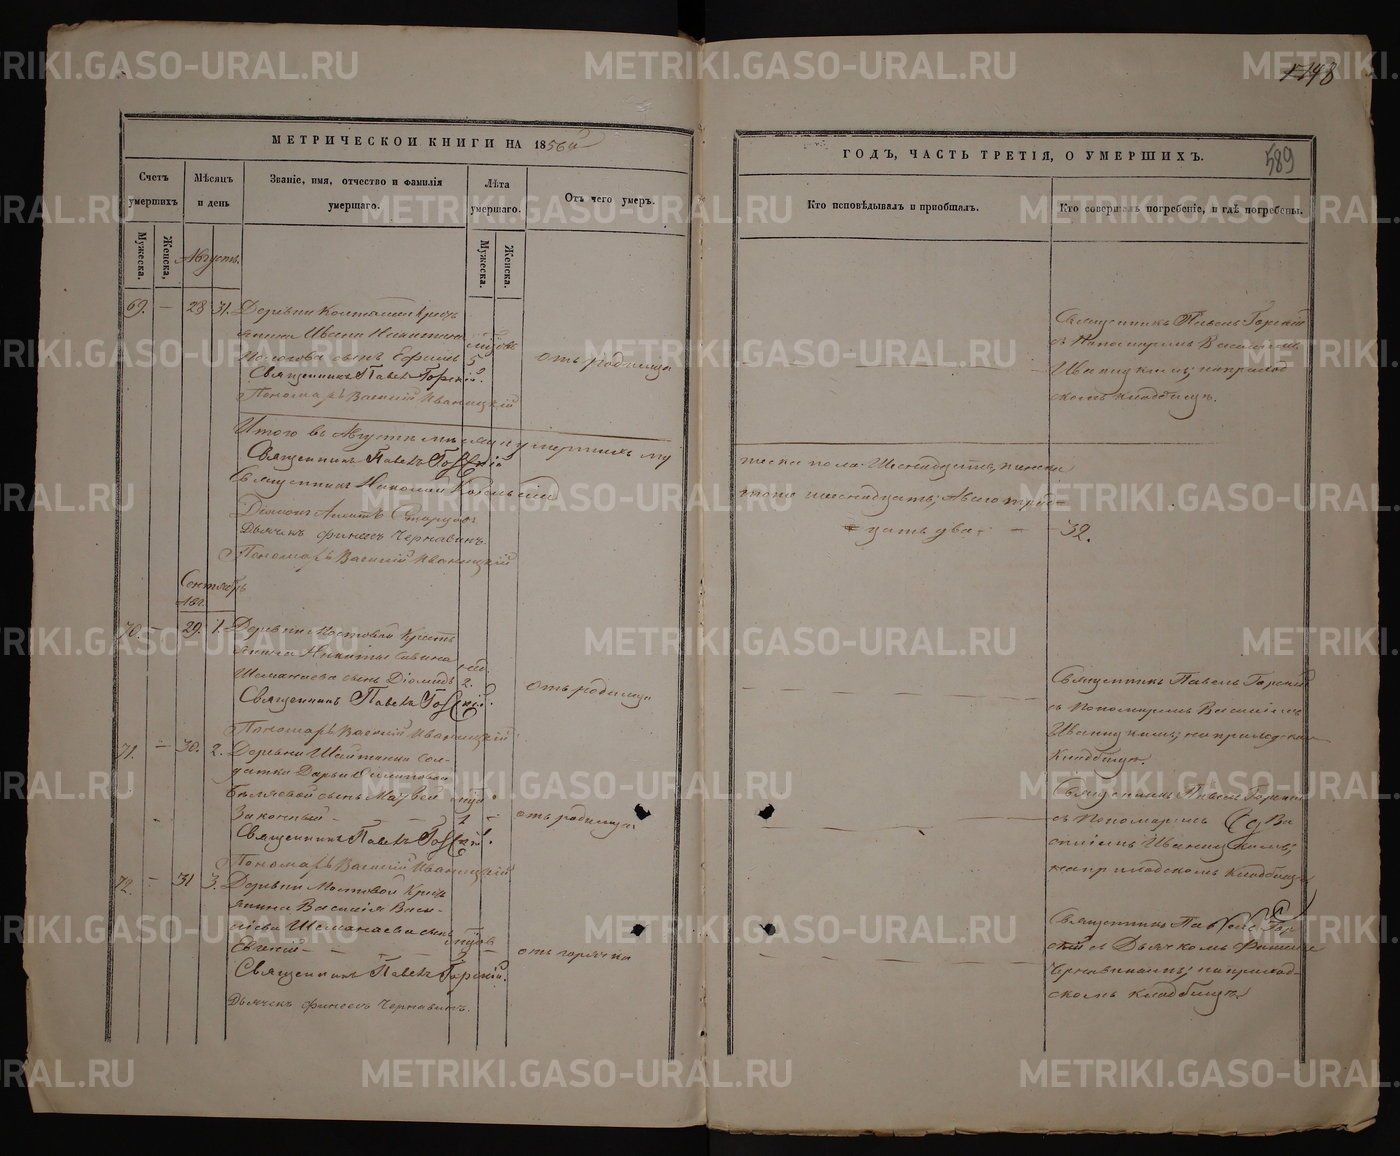 METRIKI.GASO-URAL.RU
148
МЕТРИЧЕСКОЙ КНИГИ НА 1856й
Счетъ умершихъ
Мѣсяцъ и день
Званіе, имя, отчество и фамилія умершаго.
Лѣта умершаго.
Отъ чего умеръ.
Мужеска.
Женска.
Мужеска.
Женска.
Августъ.
69. — 28 31. Деревни
Ивана Никитина
сынъ Ефремъ 5
отъ родимца
Священникъ Павелъ Горскій.
Пономарь Василій Иваницкій
Итого въ Августѣ умершихъ му
Священникъ Павелъ Горскій
Священникъ Николай
Діаконъ
Дьячекъ Финеесъ Чернавинъ.
Пономарь Василій Иваницкій
Сентябрь
Авг.
70. — 29. 1. Деревни Мостовой Кресть
янина Никиты Савина
Шеманаева сынъ Діомидъ 2.
отъ родимца
Священникъ Павелъ Горскій.
Пономарь Василій Иваницкій
71. — 30. 2. Деревни Шайтанки сол-
датки Дарьи Филиповой
сынъ Матвей
Законный — — — 1
отъ родимца
Священникъ Павелъ Горскій.
Пономарь Василій Иваницкій
72. — 31 3. Деревни Мостовой Крес
янина Василія Васи-
лиева Шеманаева сынъ
Евгеній — —
отъ горячки
Священникъ Павелъ Горскій.
Дьячекъ Финеесъ Чернавинъ.
ГОДЪ, ЧАСТЬ ТРЕТІЯ, О УМЕРШИХЪ.
589
Кто исповѣдывалъ и пріобщалъ.
Кто совершалъ погребеніе, и гдѣ погребены.
Священникъ Павелъ Горскій
съ Пономаремъ Василіемъ
Иваницкимъ; на приход
скомъ кладбищѣ.
жеска пола Шеснадцать, женска
тоже шеснадцать, Авсего трид
цать два. — — 32.
Священникъ Павелъ Горскій
съ Пономаремъ Василіемъ
Иваницкимъ; на приходскомъ
Кладбищѣ.
Священникъ Павелъ Горскій
съ Пономаремъ Ва
силіемъ Иваницкимъ;
на приходскомъ Кладбищѣ
Священникъ Павелъ Гор
скій съ Дьячкомъ Финеесомъ
Чернавинымъ; на приход-
скомъ кладбищѣ